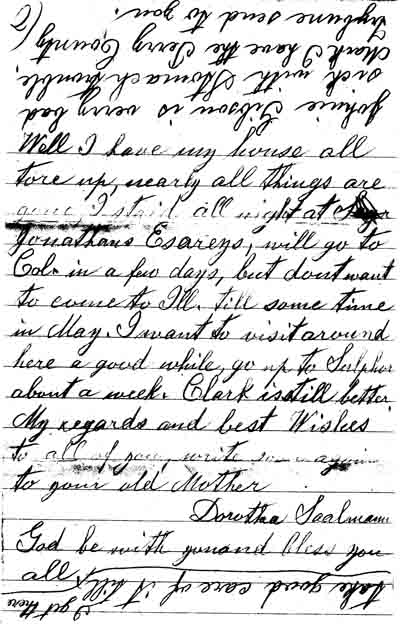 Johnie Gibson is verry bad
sick with Stomach trouble.
Mark I have the Perry County
Trybune send to you.
Well I have my house all
tore up, nearly all things are
gone, I staid all night at
Jonathans Esareys, will go to
Col. in a few days, but dont want
to come to Ill. till some time
in May. I want to visit around
here a good while, go up to Sulphur
about a week. Clark is still better
My regards and best Wishes
to all of you, write soon again
to your old Mother
Dorothea Saalmann
God be with you and bless you
all
take good care of it till
I get there